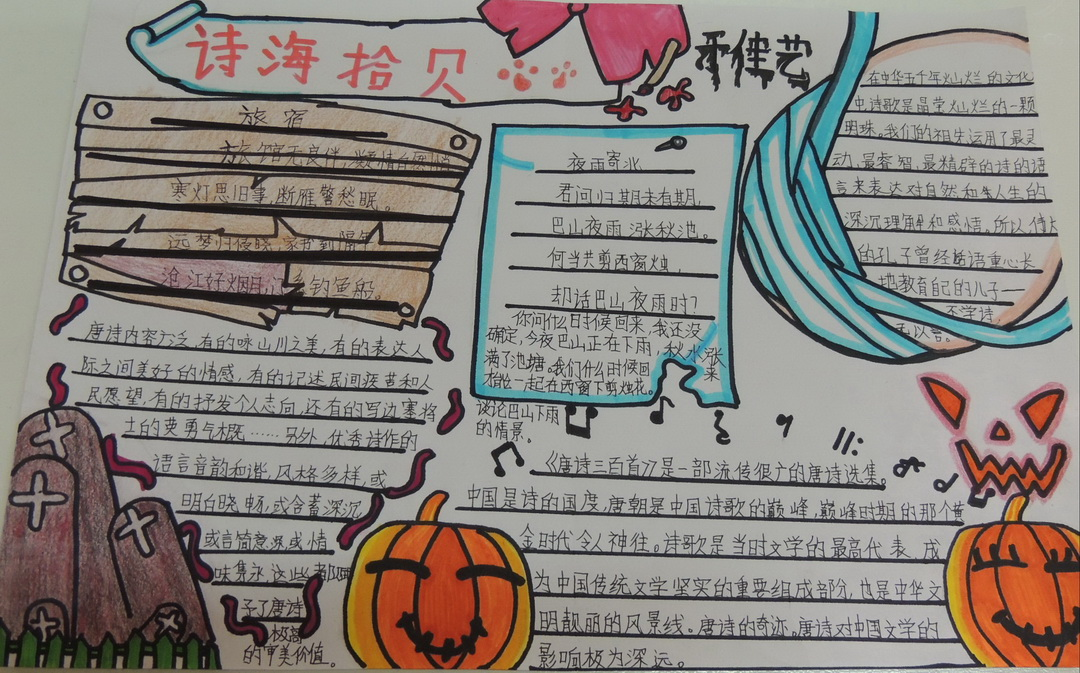 诗海拾贝
旅宿
旅馆无良伴,凝情自悄
寒灯思旧事,断雁警愁眠。
远梦归侵晓,家书到隔年
沧江好烟月,门系钓鱼船
夜雨寄北
君问归期未有期,
巴山夜雨涨秋池。
何当共剪西窗烛,
却话巴山夜雨时?
你问什么时候回来,我还没
确定,今夜巴山正在下雨,秋水涨
满了池塘。我们什么时候回来
在一起在西窗下剪烛花。
谈论巴山下雨
的情景。
在中华五千年灿烂的文化
中,诗歌是晶莹灿烂的一颗
明珠。我们的祖先运用了最灵
动、最睿智、最精辟的诗的语
言来表达对自然和人生的
深沉理解和感情。所以
的孔子曾经语重心长
地教育自己的儿子——
不学诗
以言。
唐诗内容广泛,有的咏山川之美,有的表达人
际之间美好的情感,有的记述民间疾苦和人
民愿望,有的抒发个人志向,还有的写边塞将
士的英勇气概……另外,优秀诗作的
语言音韵和谐,风格多样,或
明白晓畅,或含蓄深沉
或言简意深,或情
味隽永这些都
予了唐诗
极高
的审美价值。
《唐诗三百首》是一部流传很广的唐诗选集。
中国是诗的国度,唐朝是中国诗歌的巅峰,巅峰时期的那个黄
金时代令人神往。诗歌是当时文学的最高代表,成
为中国传统文学坚实的重要组成部分,也是中华文
明靓丽的风景线。唐诗的奇迹。唐诗对中国文学的
影响极为深远。